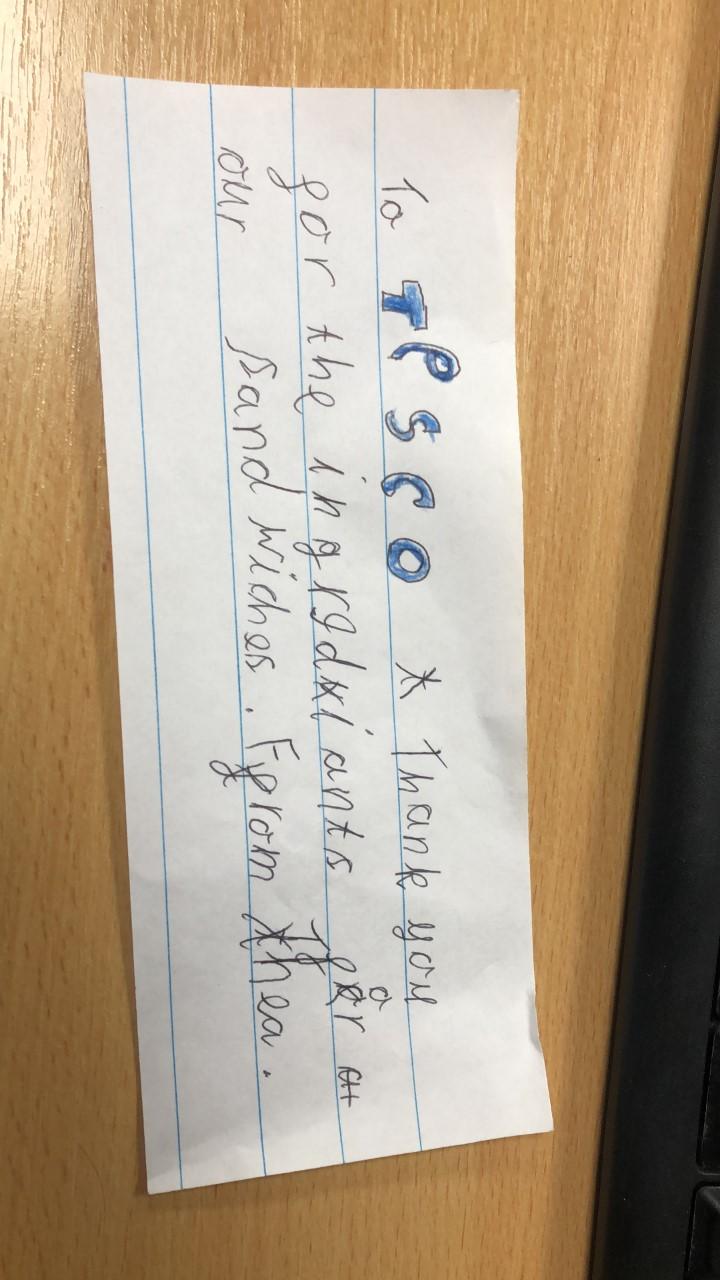 To TESCO * Thank you
for the ingredxiants for
our sandwiches. From Thea.